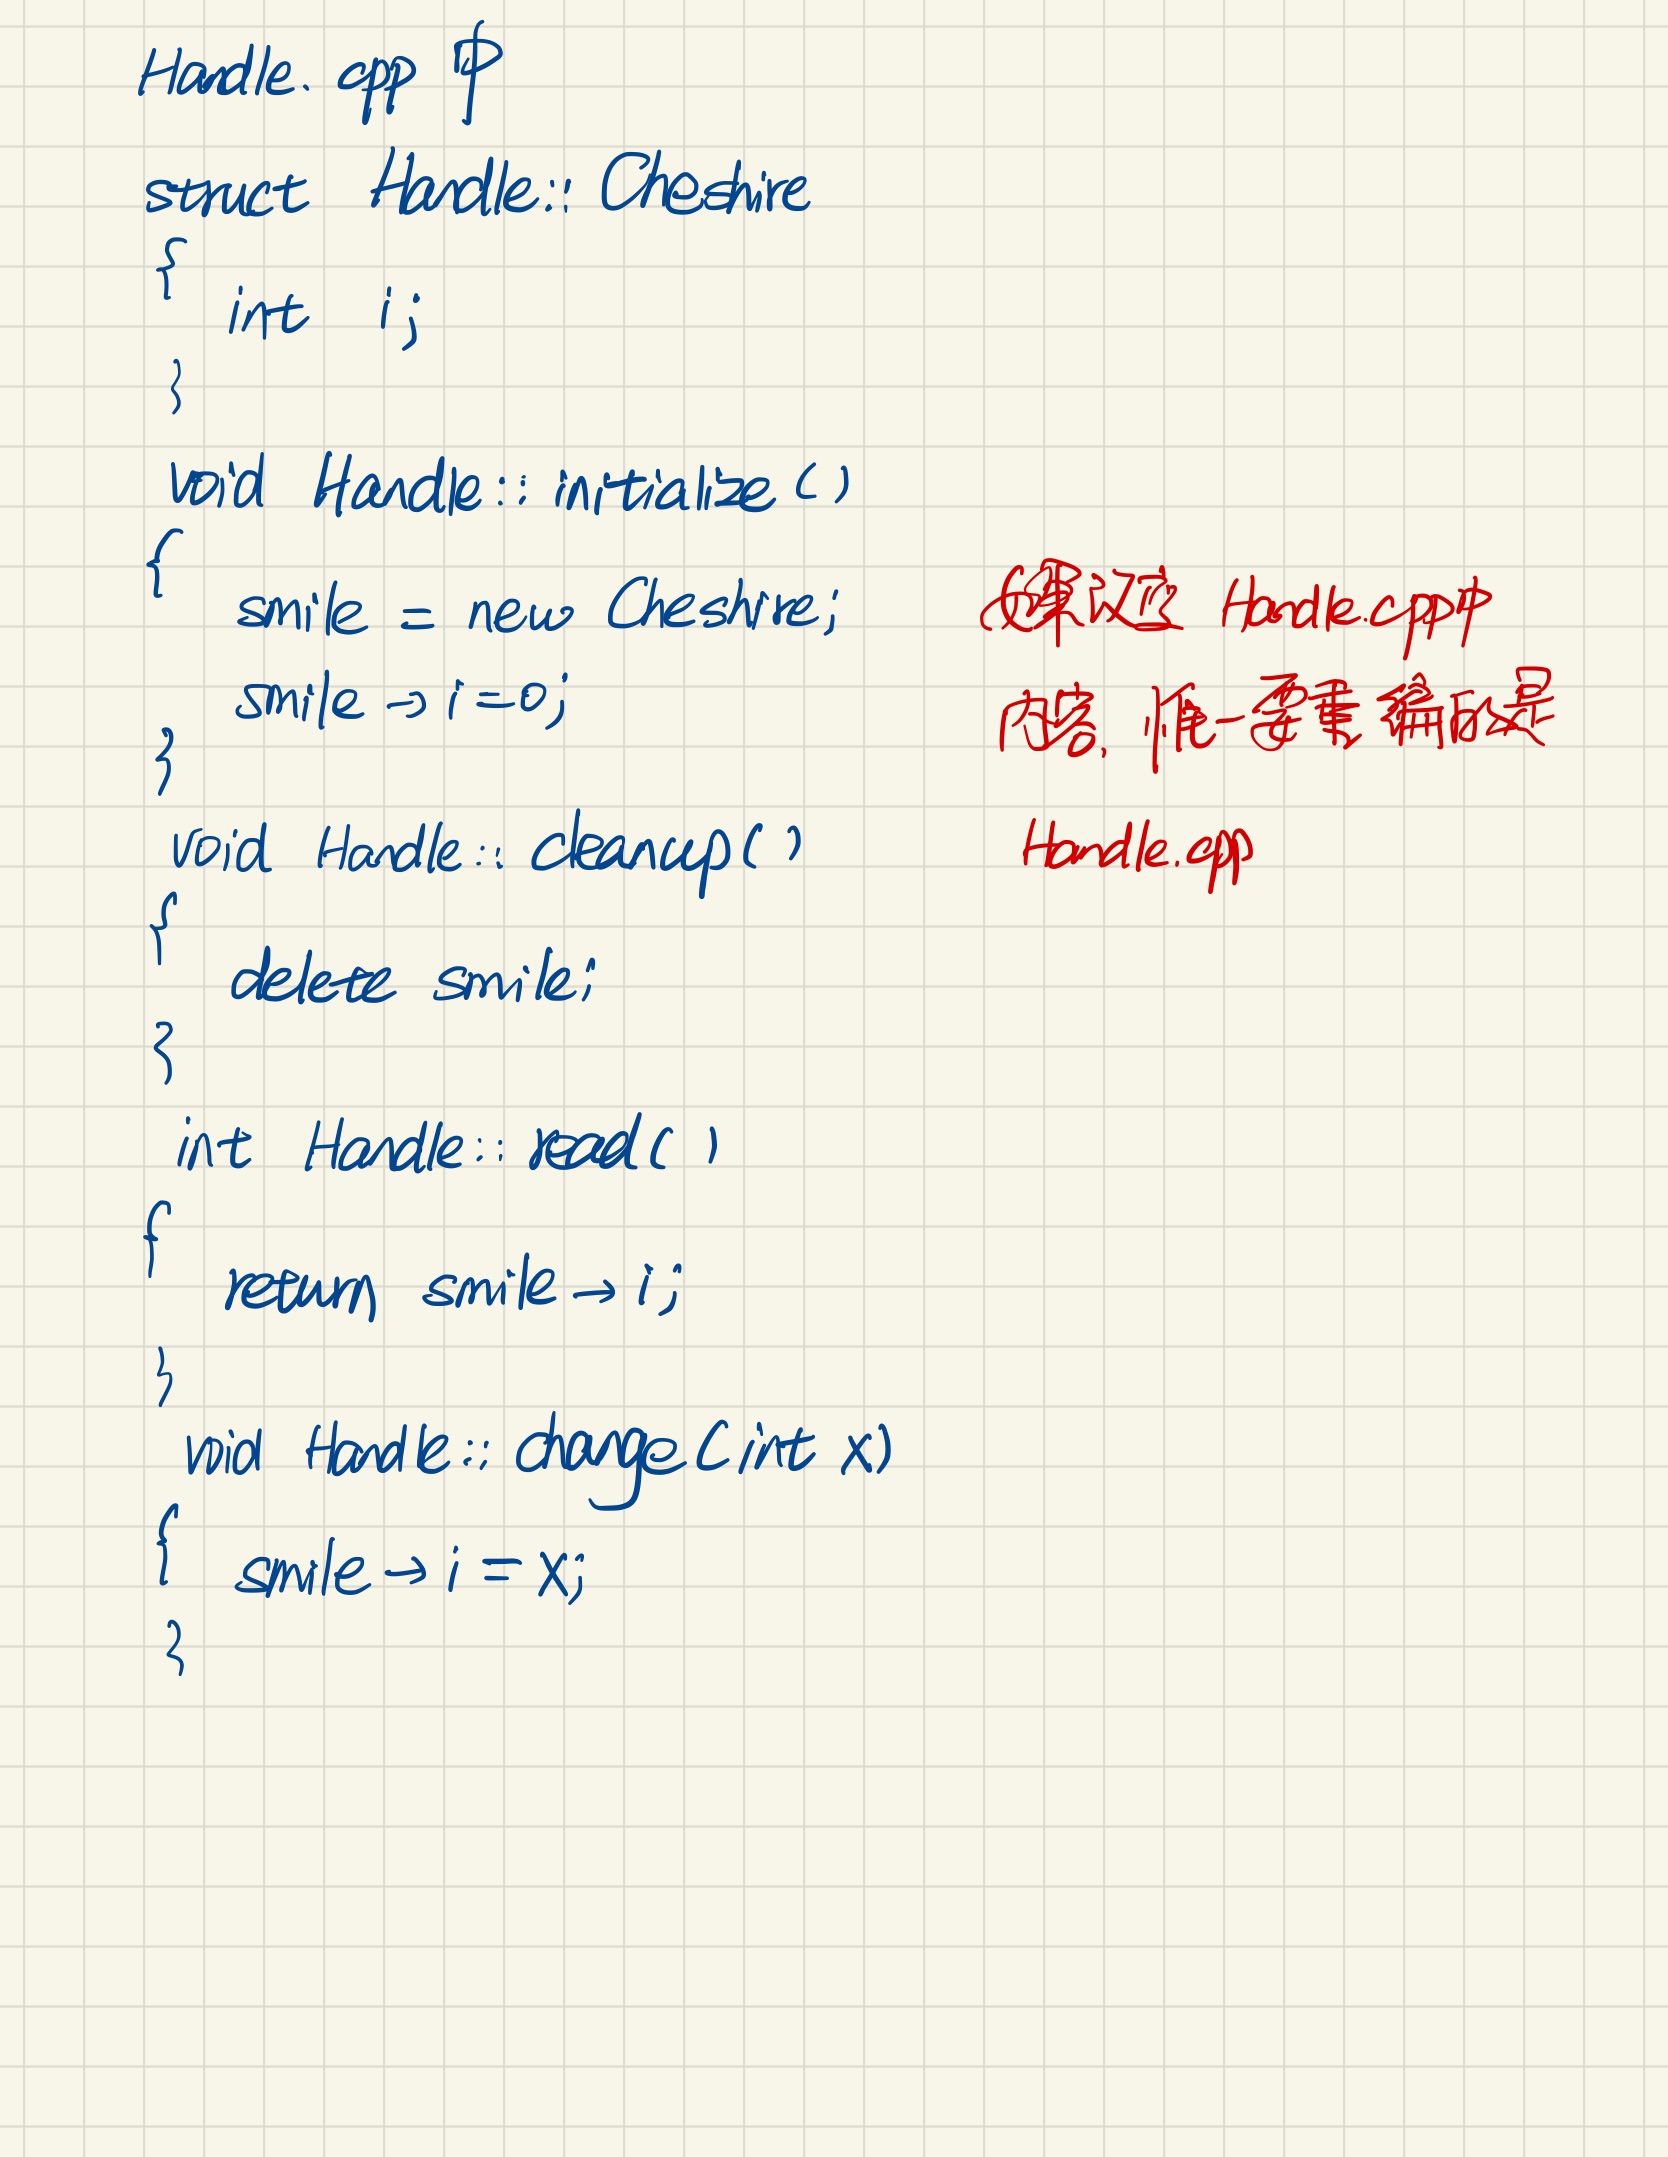 Handle.cpp 中
struct Handle::Cheshire
{
int i;
}
void Handle::initialize()
{
smile = new Cheshire;
smile→i=0;
}
void Handle::cleanup()
{
delete smile;
}
int Handle::read()
{
return smile→i;
}
void Handle::change(int x)
{
smile→i = x;
}
如果 Handle.cpp中
内容, 惟一要重编的是
Handle.cpp